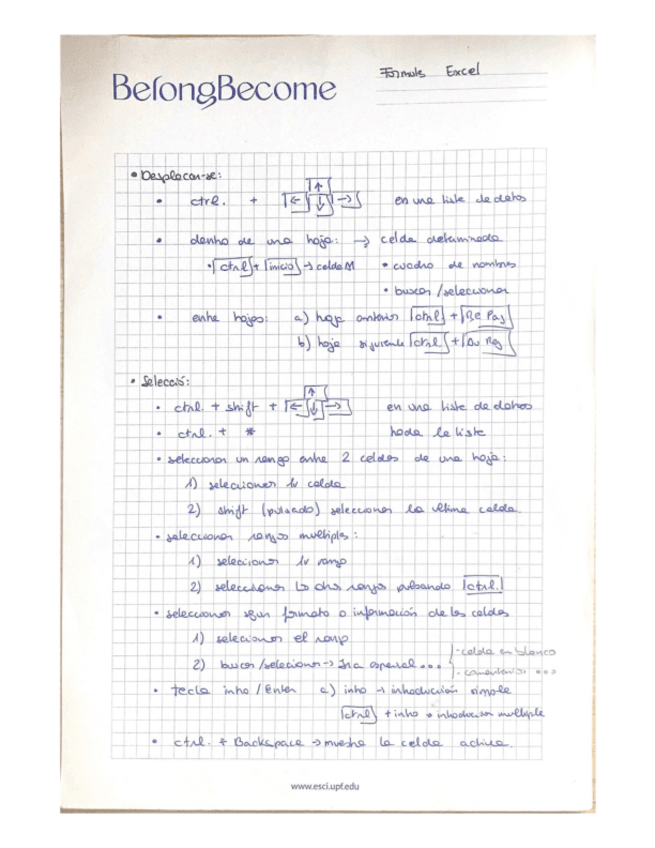 Formules Excel
BelongBecome
• Desplaçar-se:
• ctrl. + ↑ ← ↓ → en una lista de datos
• dentro de una hoja: → celda determinada
• ctrl + inicio → celda A1 • cuadro de nombres
• buscar / seleccionar
• entre hojas: a) hoja anterior ctrl + Re Pag
b) hoja siguiente ctrl + Av Pag
• Selecció:
• ctrl. + shift + ↑ ← ↓ → en una lista de datos
• ctrl. + * toda la lista
• seleccionar un rango entre 2 celdas de una hoja:
1) seleccionar 1r celda
2) shift (pulsado) seleccionar la ultima celda
• seleccionar rangos multiples:
1) seleccionar 1r rango
2) seleccionar los otros rangos pulsando ctrl.
• seleccionar segun formato o información de las celdas
1) seleccionar el rango
2) buscar / seleccionar → Ir a especial ... - celda en blanco
- comentarios ...
• tecla intro / Enter a) intro → introducción simple
ctrl + intro → introduccion multiple
• ctrl. + Backspace → muestra la celda activa.
www.esci.upf.edu